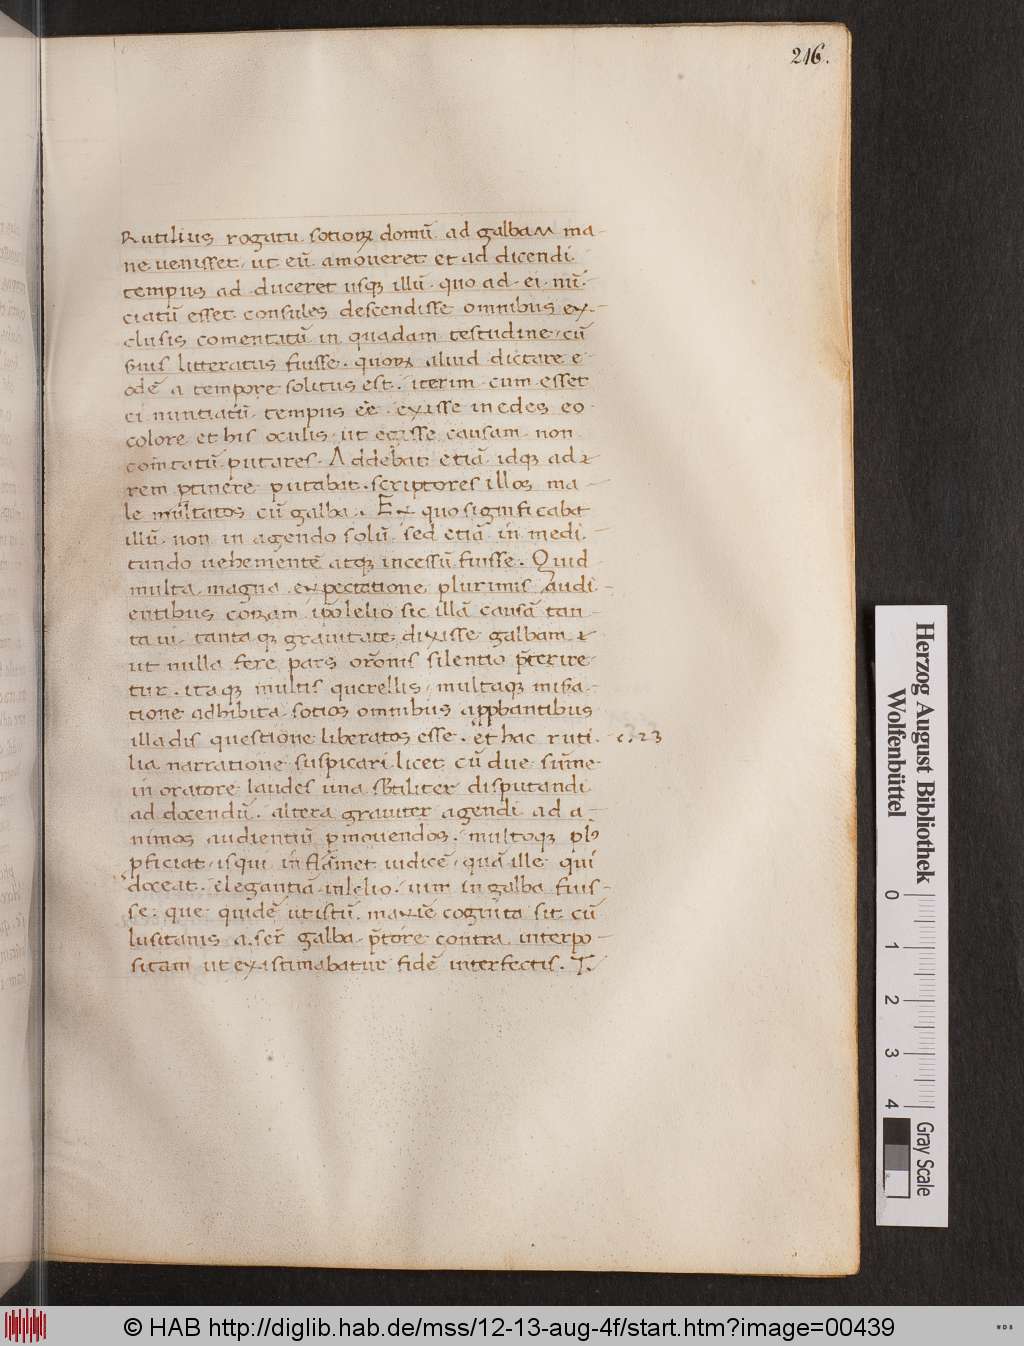 216.
Rutilius rogatu sotioꝝ domū ad galbam ma-
ne uenisset, ut eū amoueret et ad dicendi
tempus ad duceret usqꝫ illū quo ad ei nū-
ciatū esset consules descendisse omnibus ex-
clusis comentatū in quadam testudine, cū
suis litteratus fuisse. quoꝝ aliud dictare e-
odē a tempore solitus est. iterim cum esset
ei nuntiatū tempus eē. exisse in edes eo
colore et his oculis ut egisse causam non
cōmtatū putares. Addebat etiā idqꝫ ad
rem ꝑtinere putabat scriptores illos ma-
le multatos cū galba. Ex quo significabat
illū non in agendo solū sed etiā in medi-
tando uehementē atqꝫ incessū fuisse. Quid
multa magna expectatione plurimis audi-
entibus corā ip̄o lelio sic illā causā tan-
ta ui tanta qꝫ grauitate dixisse galbam
ut nulla fere pars orōnis silentio p̄terire-
tur. itaqꝫ multis querellis, multaqꝫ misera-
tione adhibita sotios omnibus approbantibus
illa dis questione liberatos esse. et hac ruti- c. 23
lia narratione suspicari licet cū due sūme
in oratore laudes una subtiliter disputandi
ad docendū. altera grauiter agendi ad a-
nimos audientiū ꝑmouendos. multoqꝫ plꝰ
ꝑficiat, is qui inflāmet iudicē, quā ille qui
doceat. elegantiā in lelio, uim in galba fuis-
se. que quidē ut istū maxīe cognita sit cū
lusitanis a ser̄ galba p̄tore contra interpo-
sitam ut existimabatur fidē interfectis. T.
Herzog August Bibliothek
Wolfenbüttel
0 1 2 3 4 Gray Scale
© HAB http://diglib.hab.de/mss/12-13-aug-4f/start.htm?image=00439